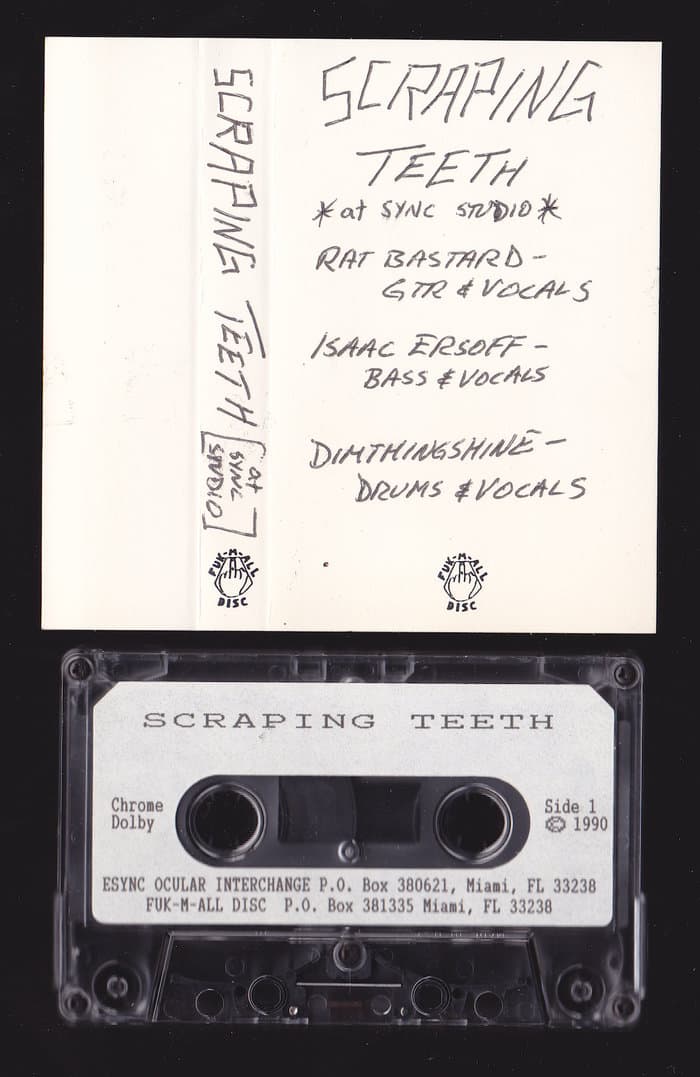 SCRAPING
TEETH
*at SYNC STUDIO*
RAT BASTARD -
GTR & VOCALS
ISAAC ERSOFF -
BASS & VOCALS
DIMTHINGSHINE -
DRUMS & VOCALS
FUK-M-ALL
DISC
SCRAPING TEETH [at
SYNC
STUDIO]
FUK-M-ALL
DISC
SCRAPING TEETH
Chrome
Dolby
Side 1
© 1990
ESYNC OCULAR INTERCHANGE P.O. Box 380621, Miami, FL 33238
FUK-M-ALL DISC P.O. Box 381335 Miami, FL 33238